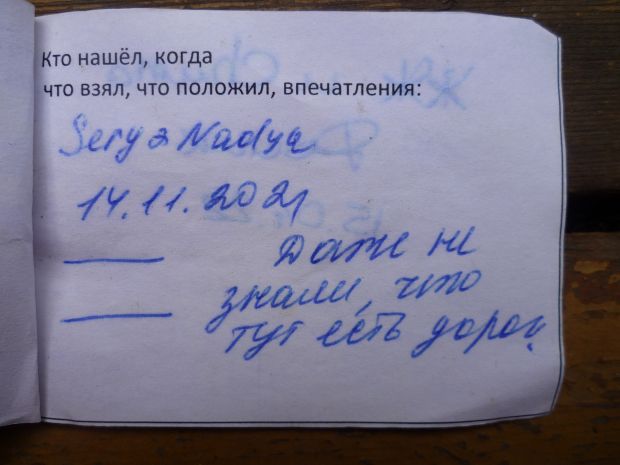 Кто нашёл, когда
что взял, что положил, впечатления:
Sery & Nadya
14.11.2021
Даже не
знали, что
тут есть